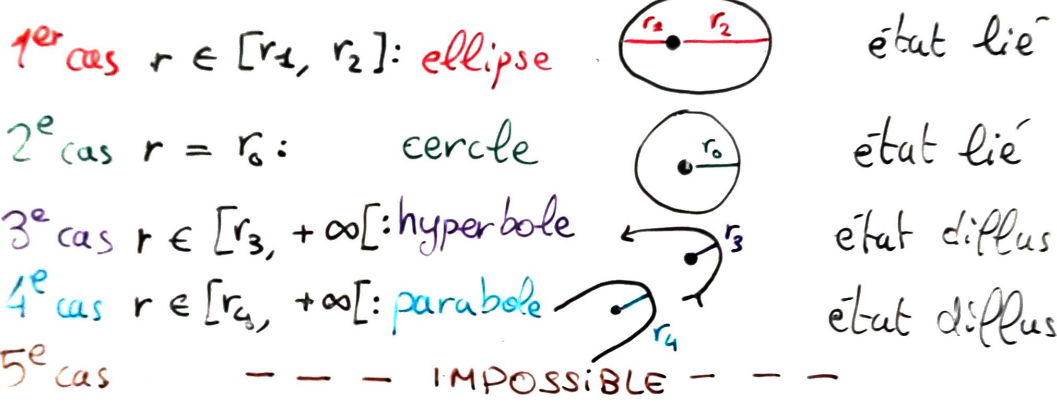 1er cas r ∈ [r1, r2]: ellipse r1 r2 état lié
2e cas r = r0: cercle r0 état lié
3e cas r ∈ [r3, +∞[: hyperbole r3 état diffus
4e cas r ∈ [r4, +∞[: parabole r4 état diffus
5e cas --- IMPOSSiBLE ---